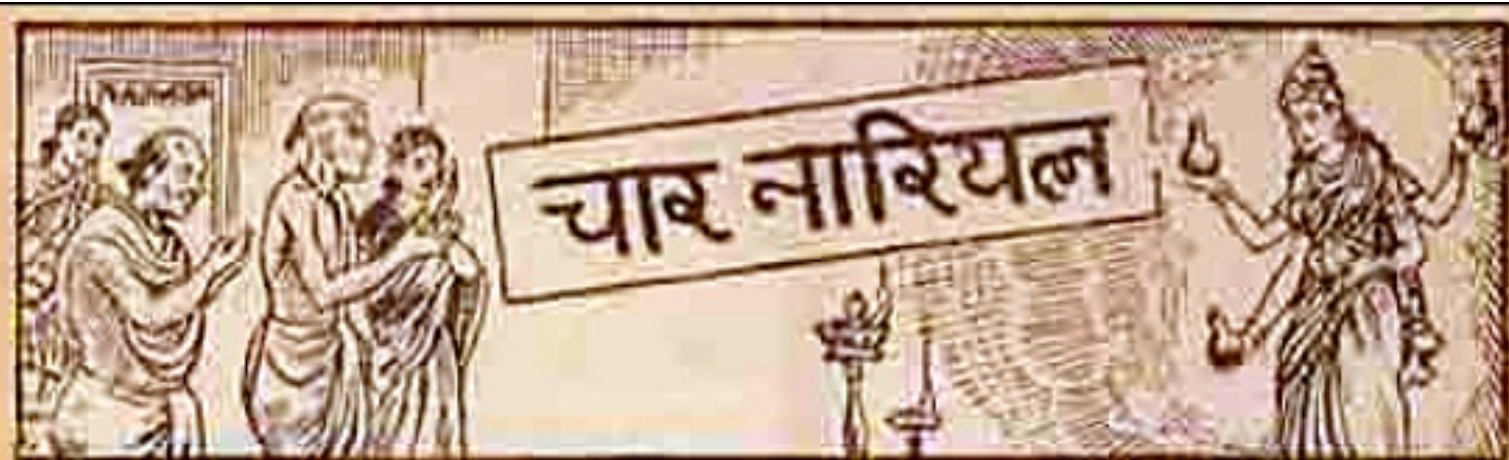 चार नारियल